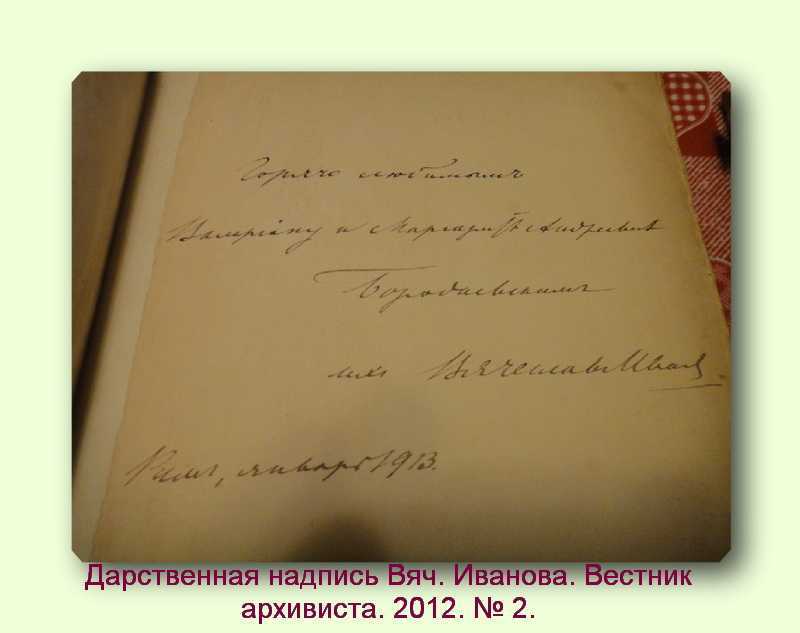 Горячо любимымъ
Валеріану и Маргаритѣ Андреевнѣ
Бородаевскимъ
ихъ Вячеславъ Иванов
Римъ, январь 1913.
Дарственная надпись Вяч. Иванова. Вестник
архивиста. 2012. № 2.